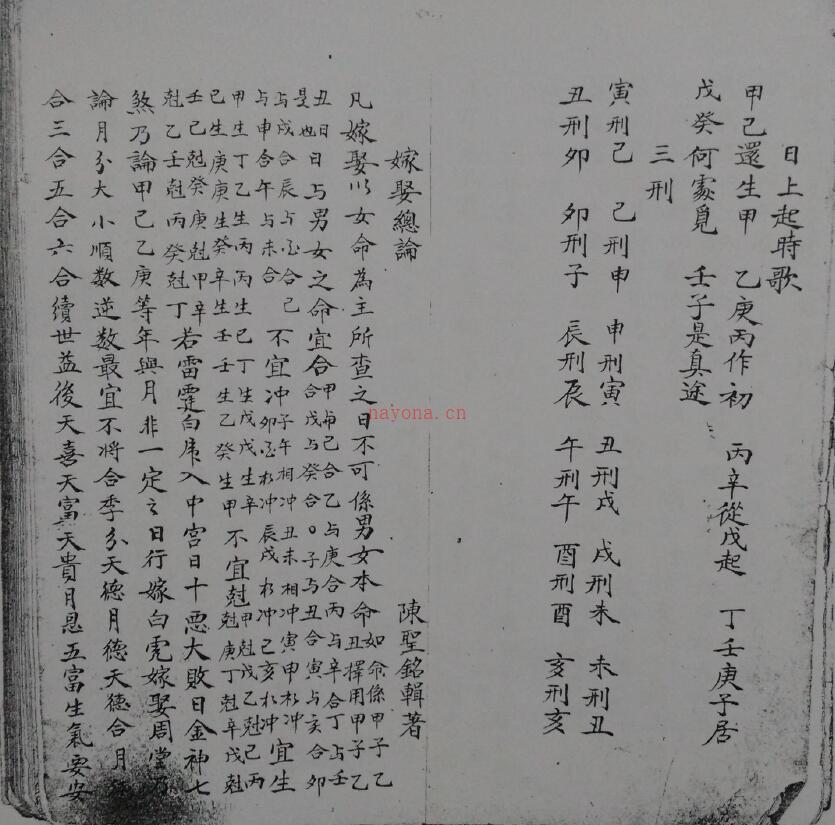 日上起時歌
甲己還生甲 乙庚丙作初 丙辛從戊起 丁壬庚子居
戊癸何處覓 壬子是真途
三刑
寅刑己 己刑申 申刑寅 丑刑戌 戌刑未 未刑丑
丑刑卯 卯刑子 辰刑辰 午刑午 酉刑酉 亥刑亥
嫁娶總論 陳聖銘輯著
凡嫁娶以女命為主所查之日不可係男女本命如命係甲子乙丑擇用甲子乙
丑日是也日与男女之命宜合甲与己合乙与庚合丙与辛合丁与壬合戊与癸合。子与丑合寅与亥合卯
与戌合辰与酉合己与申合午与未合不宜冲子午相冲丑未相冲寅申相冲卯酉相冲辰戌相冲己亥相冲宜生
甲生丁乙生丙丙生己丁生戊戊生辛己生庚庚生癸辛生壬壬生乙癸生甲不宜尅甲尅戊乙尅己丙尅庚丁尅辛戊尅
壬己尅癸庚尅甲辛尅乙壬尅丙癸尅丁若雷霆白虎入中宮日十悪大敗日金神七
煞乃論甲己乙庚等年與月非一定之日行嫁白虎嫁娶周堂乃
論月分大小順数逆数最宜不將合季分天德月德天德合月
合三合五合六合續世益後天喜天富天貴月恩五富生氣要安
nayona.cn